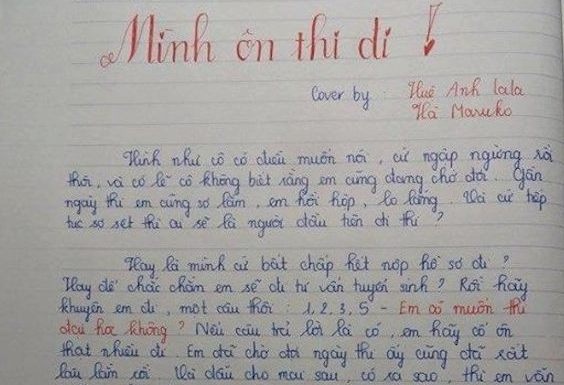 Mình ôn thi đi !
Cover by : Huê Anh lala
Hà Maruko
Hình như cô có điều muốn nói , cứ ngập ngừng rồi
thôi , và có lẽ cô không biết rằng em cũng đang chờ đợi . Gần
ngày thi em cũng sợ lắm , em hồi hộp , lo lắng . Và cứ tiếp
tục sợ sệt thì ai sẽ là người đầu tiên đi thi ?
Hay là mình cứ bất chấp hết nộp hồ sơ đi ?
Hay để chắc chắn em sẽ đi tư vấn tuyển sinh ? Rồi hãy
khuyên em đi , một câu thôi : 1, 2, 3, 5 - Em có muốn thi
đại học không ? Nếu câu trả lời là có , em hãy cố ôn
thật nhiều đi . Em đã chờ đợi ngày thi ấy cũng đã rất
lâu lắm rồi . Và dẫu cho mai sau , có ra sao , thì em vẫn